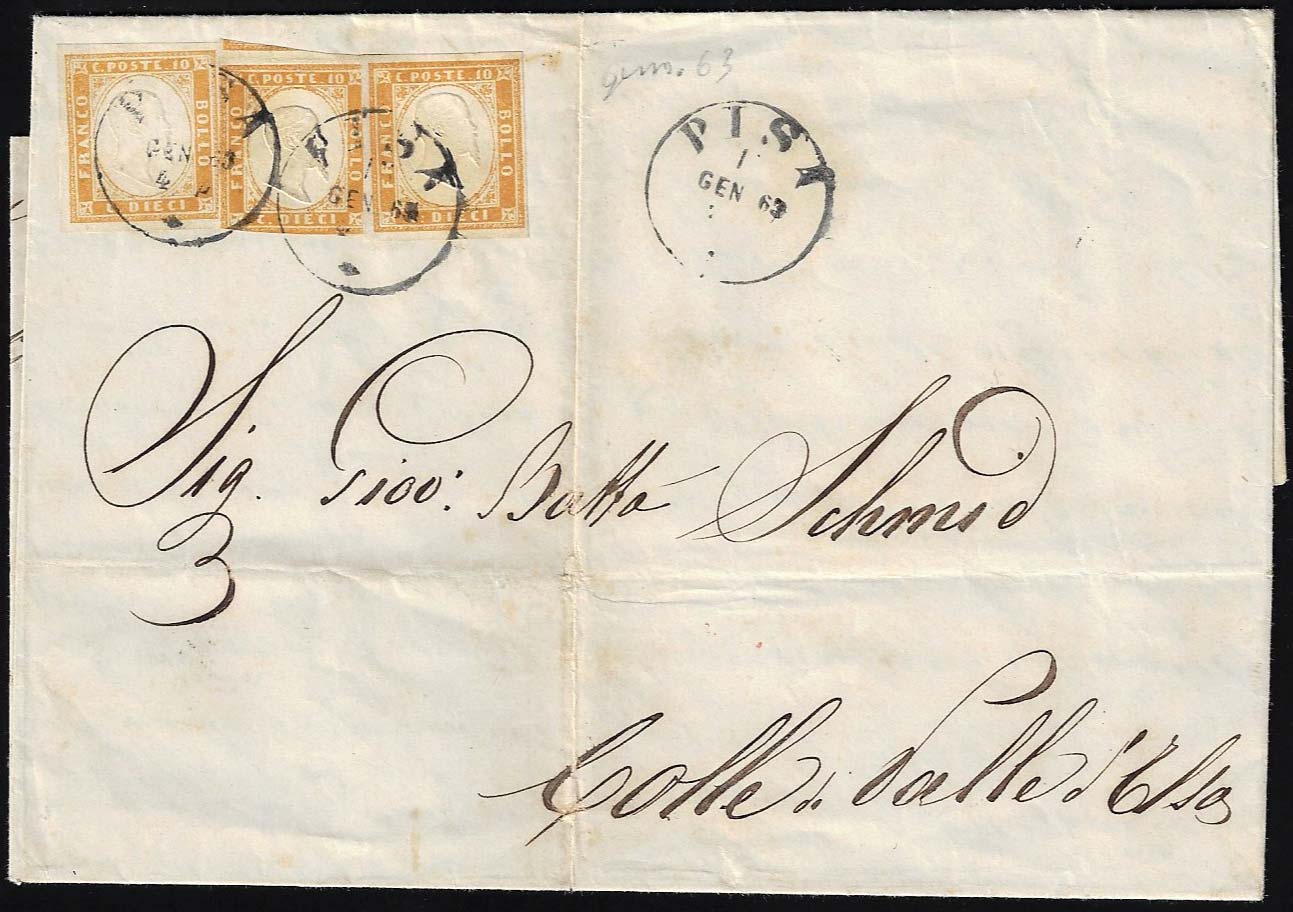 C. POSTE 10
FRANCO
BOLLO
C. DIECI
C. POSTE 10
FRANCO
BOLLO
C. DIECI
C. POSTE 10
FRANCO
BOLLO
C. DIECI
PISA
GEN 63
4
PISA
1
GEN 63
genn. 63
PISA
1
GEN 63
Sig. Giov: Batta Schmid
3
Colle di Valle d'Elsa